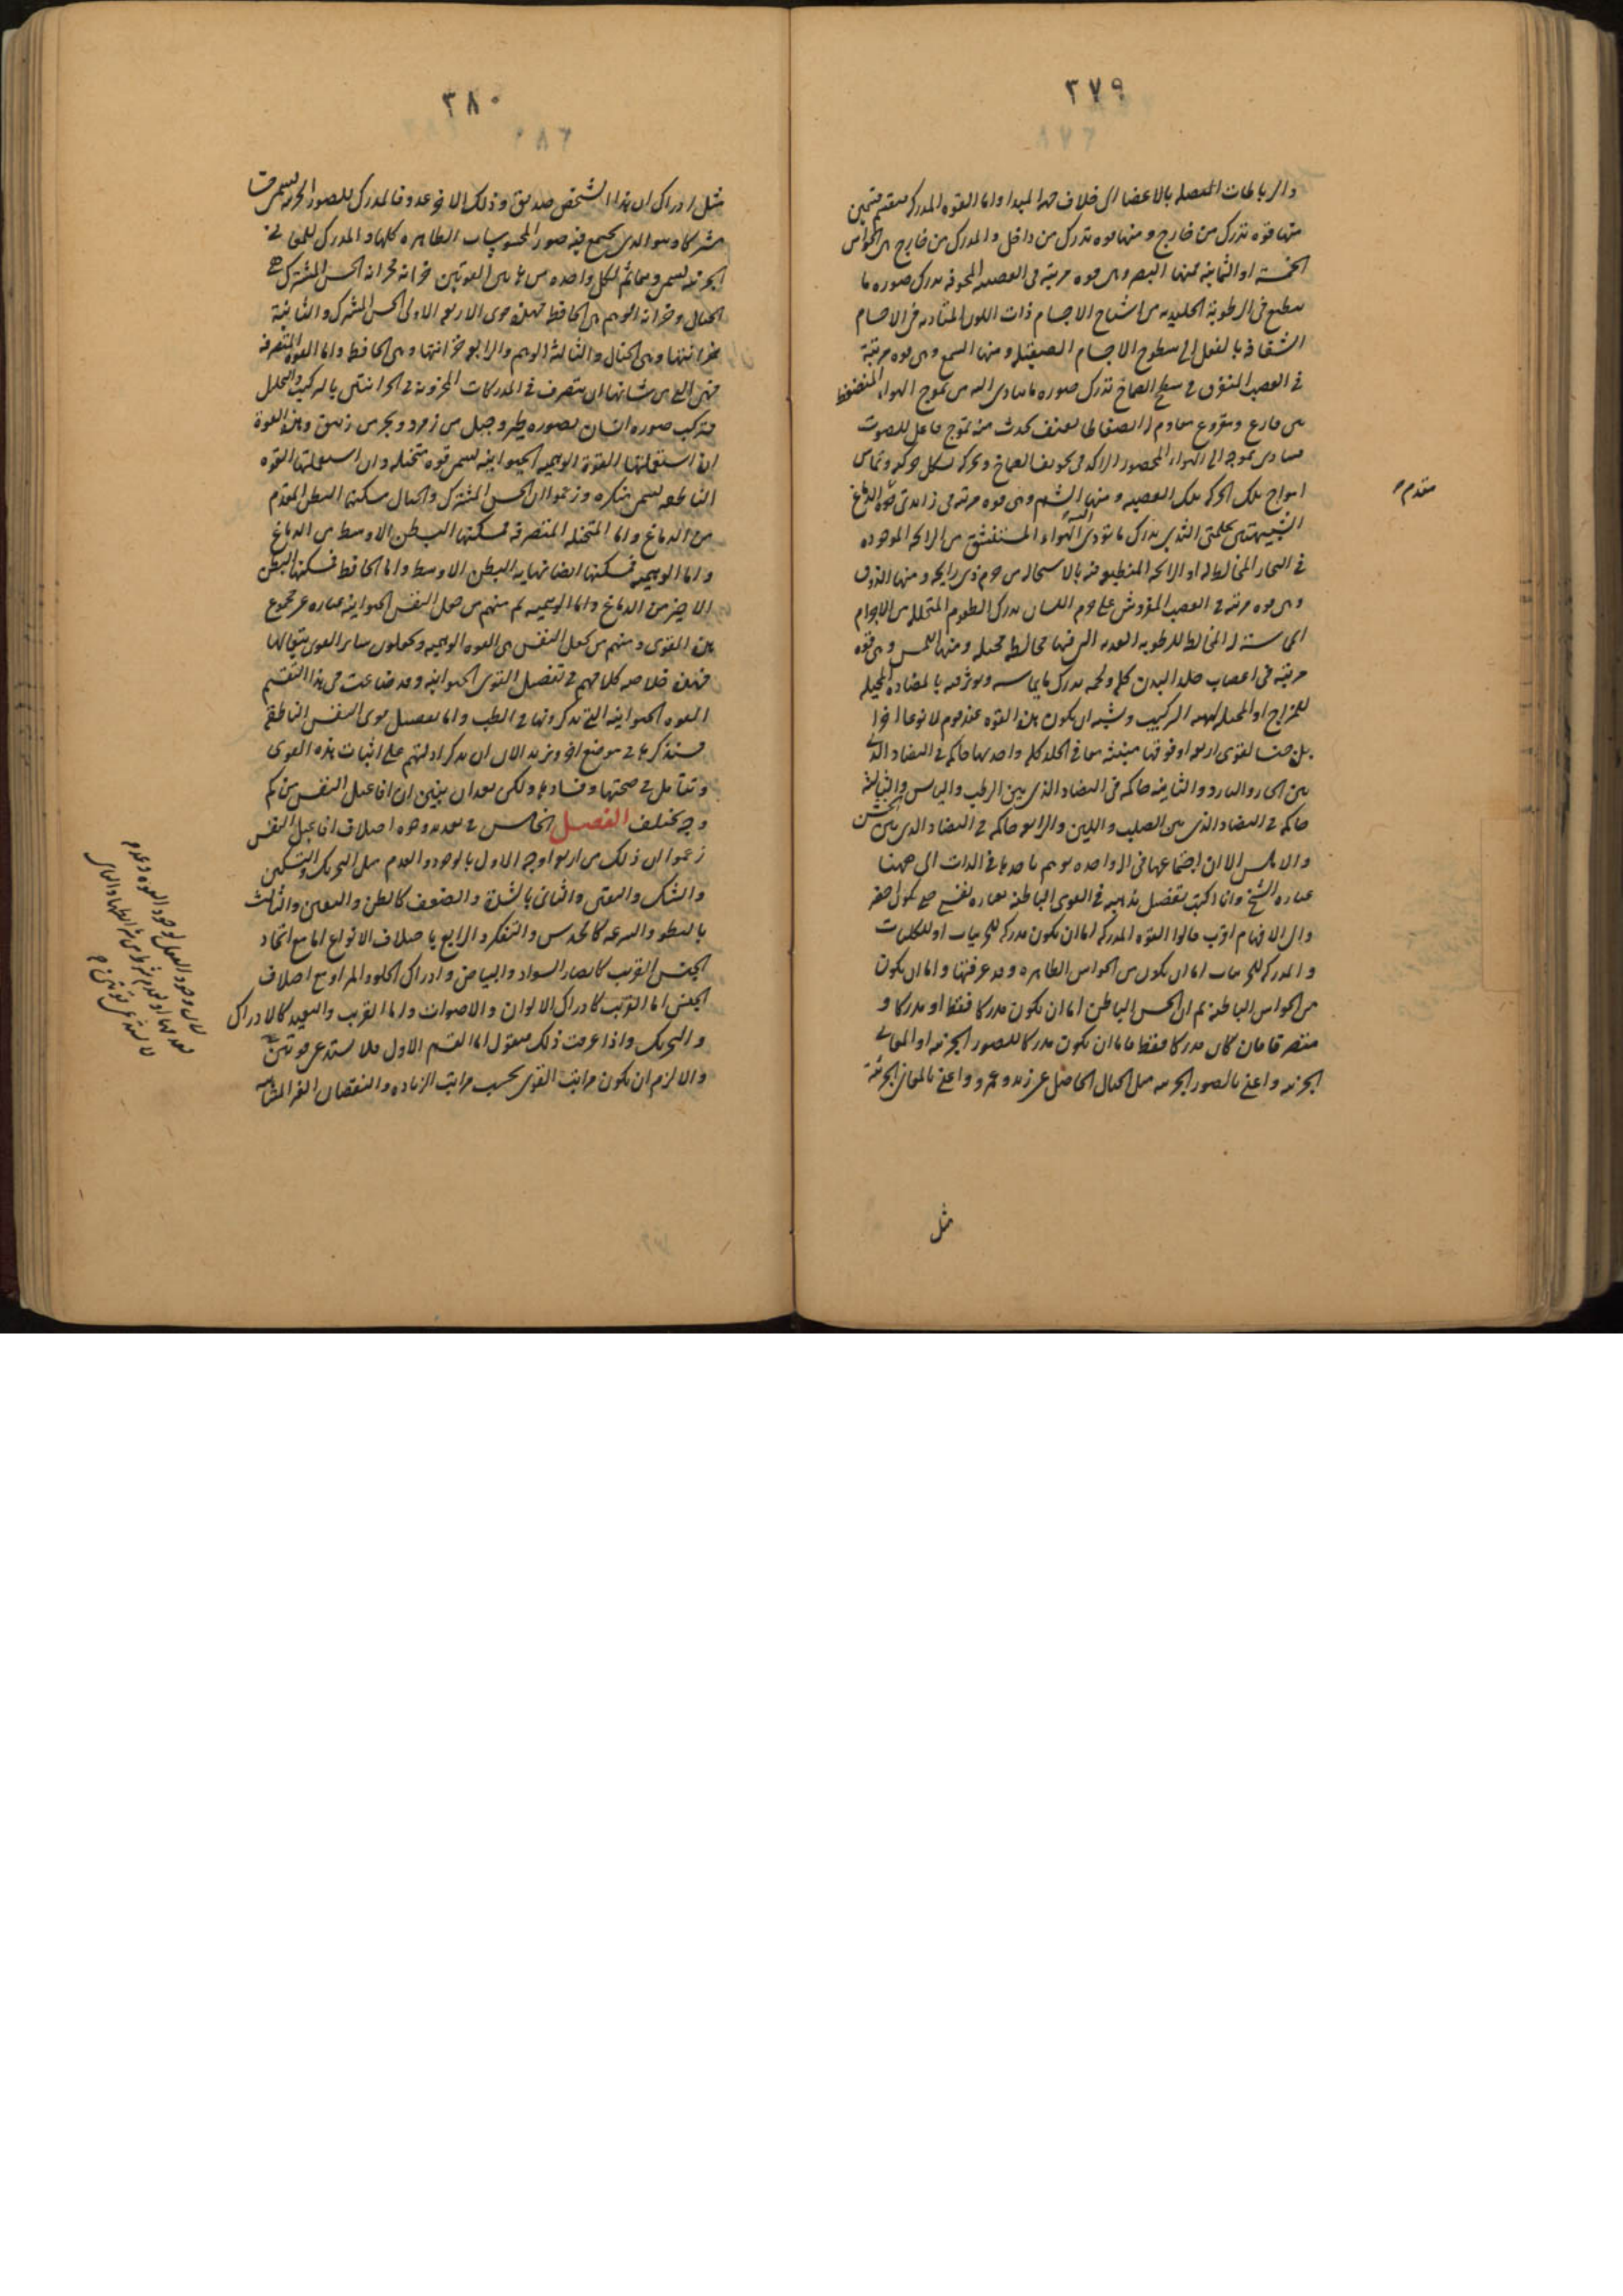 ٣٧٩
والرباطات المتصله بالاعضا الى خلاف جهة المبدا واما القوه المدركه فتنقسم قسمين
منها قوه تدرك من خارج و منها قوه تدرك من داخل والمدرك من خارج هى الحواس
الخمسة او الثمانية فمنها البصر وهى قوه مرتبة فى العصبه المجوفه تدرك صوره ما
ينطبع فى الرطوبة الجليديه من اشباح الاجسام ذات اللون المتاديه فى الاجسام
الشفافه بالفعل الى سطوح الاجسام الصقيله و منها السمع وهى قوه مرتبة
فى العصب المتفرق فى سطح الصماخ تدرك صوره ما يتادى اليه من تموج الهواء المنضغط
بين قارع ومقروع مقاوم له انضغاطا بعنف يحدث منه تموج فاعل للصوت
فيتادى تموجه الى الهواء المحصور الراكد فى تجويف الصماخ ويحركه بشكل حركته وتماس
امواج تلك الحركه تلك العصبه و منها الشم وهى قوه مرتبة فى زايدتى مقدم الدماغ
الشبيهتين بحلمتى الثدى تدرك ما يؤدى اليه الهواء المستنشق من الرائحه الموجوده
فى البخار المخالط له او الرائحه المنطبعه فيه بالاستحاله من جرم ذى رايحه و منها الذوق
وهى قوه مرتبه فى العصب المفروش على جرم اللسان تدرك الطعوم المتحلله من الاجرام
المماسة له المخالطه للرطوبه العذبه التى فيها مخالطه محيله و منها اللمس وهى قوه
مرتبة فى اعصاب جلد البدن كله ولحمه تدرك ما يماسه ويوثر فيه بالمضاده المحيله
للمزاج او المحيله لهيئه التركيب ويشبه ان يكون هذه القوه عند قوم لا نوعا اخيرا
بل جنسا لقوى اربع او فوقها منبثه معا فى الجلد كله واحدتها حاكمه فى التضاد الذى
بين الحار والبارد والثانيه حاكمه فى التضاد الذى بين الرطب واليابس والثالثة
حاكمه فى التضاد الذى بين الصلب واللين والرابعه حاكمه فى التضاد الذى بين الخشن
والاملس الا ان اجتماعها فى اله واحده يوهم تاحدها فى الذات الى ههنا
عباره الشيخ وانا اكتب تفصيل مذهبه فى القوى الباطنه بعباره نفسى حتى يكون احضر
والى الافهام اقرب قالوا القوه المدركه اما ان يكون مدركه للجزئيات او للكليات
والمدركه للجزئيات اما ان يكون من الحواس الظاهره وقد عرفتها واما ان يكون
من الحواس الباطنه ثم ان الحس الباطن اما ان يكون مدركا فقط او مدركا و
متصرفا فان كان مدركا فقط فاما ان يكون مدركا للصور الجزئيه او المعانى
الجزئيه واعنى بالصور الجزئيه مثل الخيال الحاصل عن زيد وعمرو واعنى بالمعانى الجزئية
مقدم
مثل
٣٨٠
مثل ادراك ان هذا الشخص صديق وذلك الاخر عدو فالمدرك للصور الجزئيه يسمى حسا
مشتركا وهو الذى يجتمع فيه صور المحسوسات الظاهره كلها والمدرك للمعانى
الجزئيه يسمى وهما ثم لكل واحده من هاتين القوتين خزانه فخزانه الحس المشترك هى
الخيال وخزانه الوهم هى الحافظه فهذه قوى الاربعه الاولى الحس المشترك والثانية
خزانتها وهى الخيال والثالثه الوهم والرابعه خزانتها وهى الحافظه واما القوه المتصرفه
فهى التى من شانها ان يتصرف فى المدركات المخزونه فى الخزانتين بالتركيب والتحليل
فتركب صوره انسان بصوره طير وجبل من زمرد وبحر من زيبق وهذه القوة
ان استعملتها القوة الوهميه الحيوانيه يسمى قوه متخيله وان استعملتها القوه
الناطقه يسمى مفكره وزعموا ان الحس المشترك والخيال مسكنهما البطن المقدم
من الدماغ واما المتخيله المتصرفه فمسكنها البطن الاوسط من الدماغ
واما الوهميه فمسكنها ايضا نهايه البطن الاوسط واما الحافظه فمسكنها البطن
الاخير من الدماغ واما الوهميه ثم منهم من جعل النفس الحيوانيه عباره عن مجموع
هذه القوى ومنهم من يجعل النفس هى القوه الوهميه ويجعلون ساير القوى تبعا لها
فهذه خلاصه كلامهم فى تفصيل القوى الحيوانيه وقد ضاعت فى هذا التقسيم
القوه الحيوانيه التى يذكرونها فى الطب واما تفصيل قوى النفس الناطقه
فسنذكرها فى موضع اخر ونريد الان ان نذكر ادلتهم على اثبات هذه القوى
ونتامل فى صحتها وفسادها ولكن بعد ان نبين ان افاعيل النفس من كم
وجه يختلف الفصل الخامس فى تعديد وجوه اختلاف افاعيل النفس
زعموا ان ذلك من اربعه اوجه الاول بالوجود والعدم مثل التحريك والتسكين
والشك واليقين والثانى بالشدة والضعف كالظن واليقين والثالث
بالبطو والسرعه كالحدس والتفكر والرابع باختلاف الانواع اما مع اتحاد
الجنس القريب كابصار السواد والبياض وادراك الحلو والمر او مع اختلاف
الجنس اما القريب كادراك الالوان والاصوات واما القريب والبعيد كالادراك
والتحريك واذا عرفت ذلك فنقول اما القسم الاول فلا يستدعى قوتين
والا لزم ان يكون مراتب القوى بحسب مراتب الزياده والنقصان الغير المتناهيه